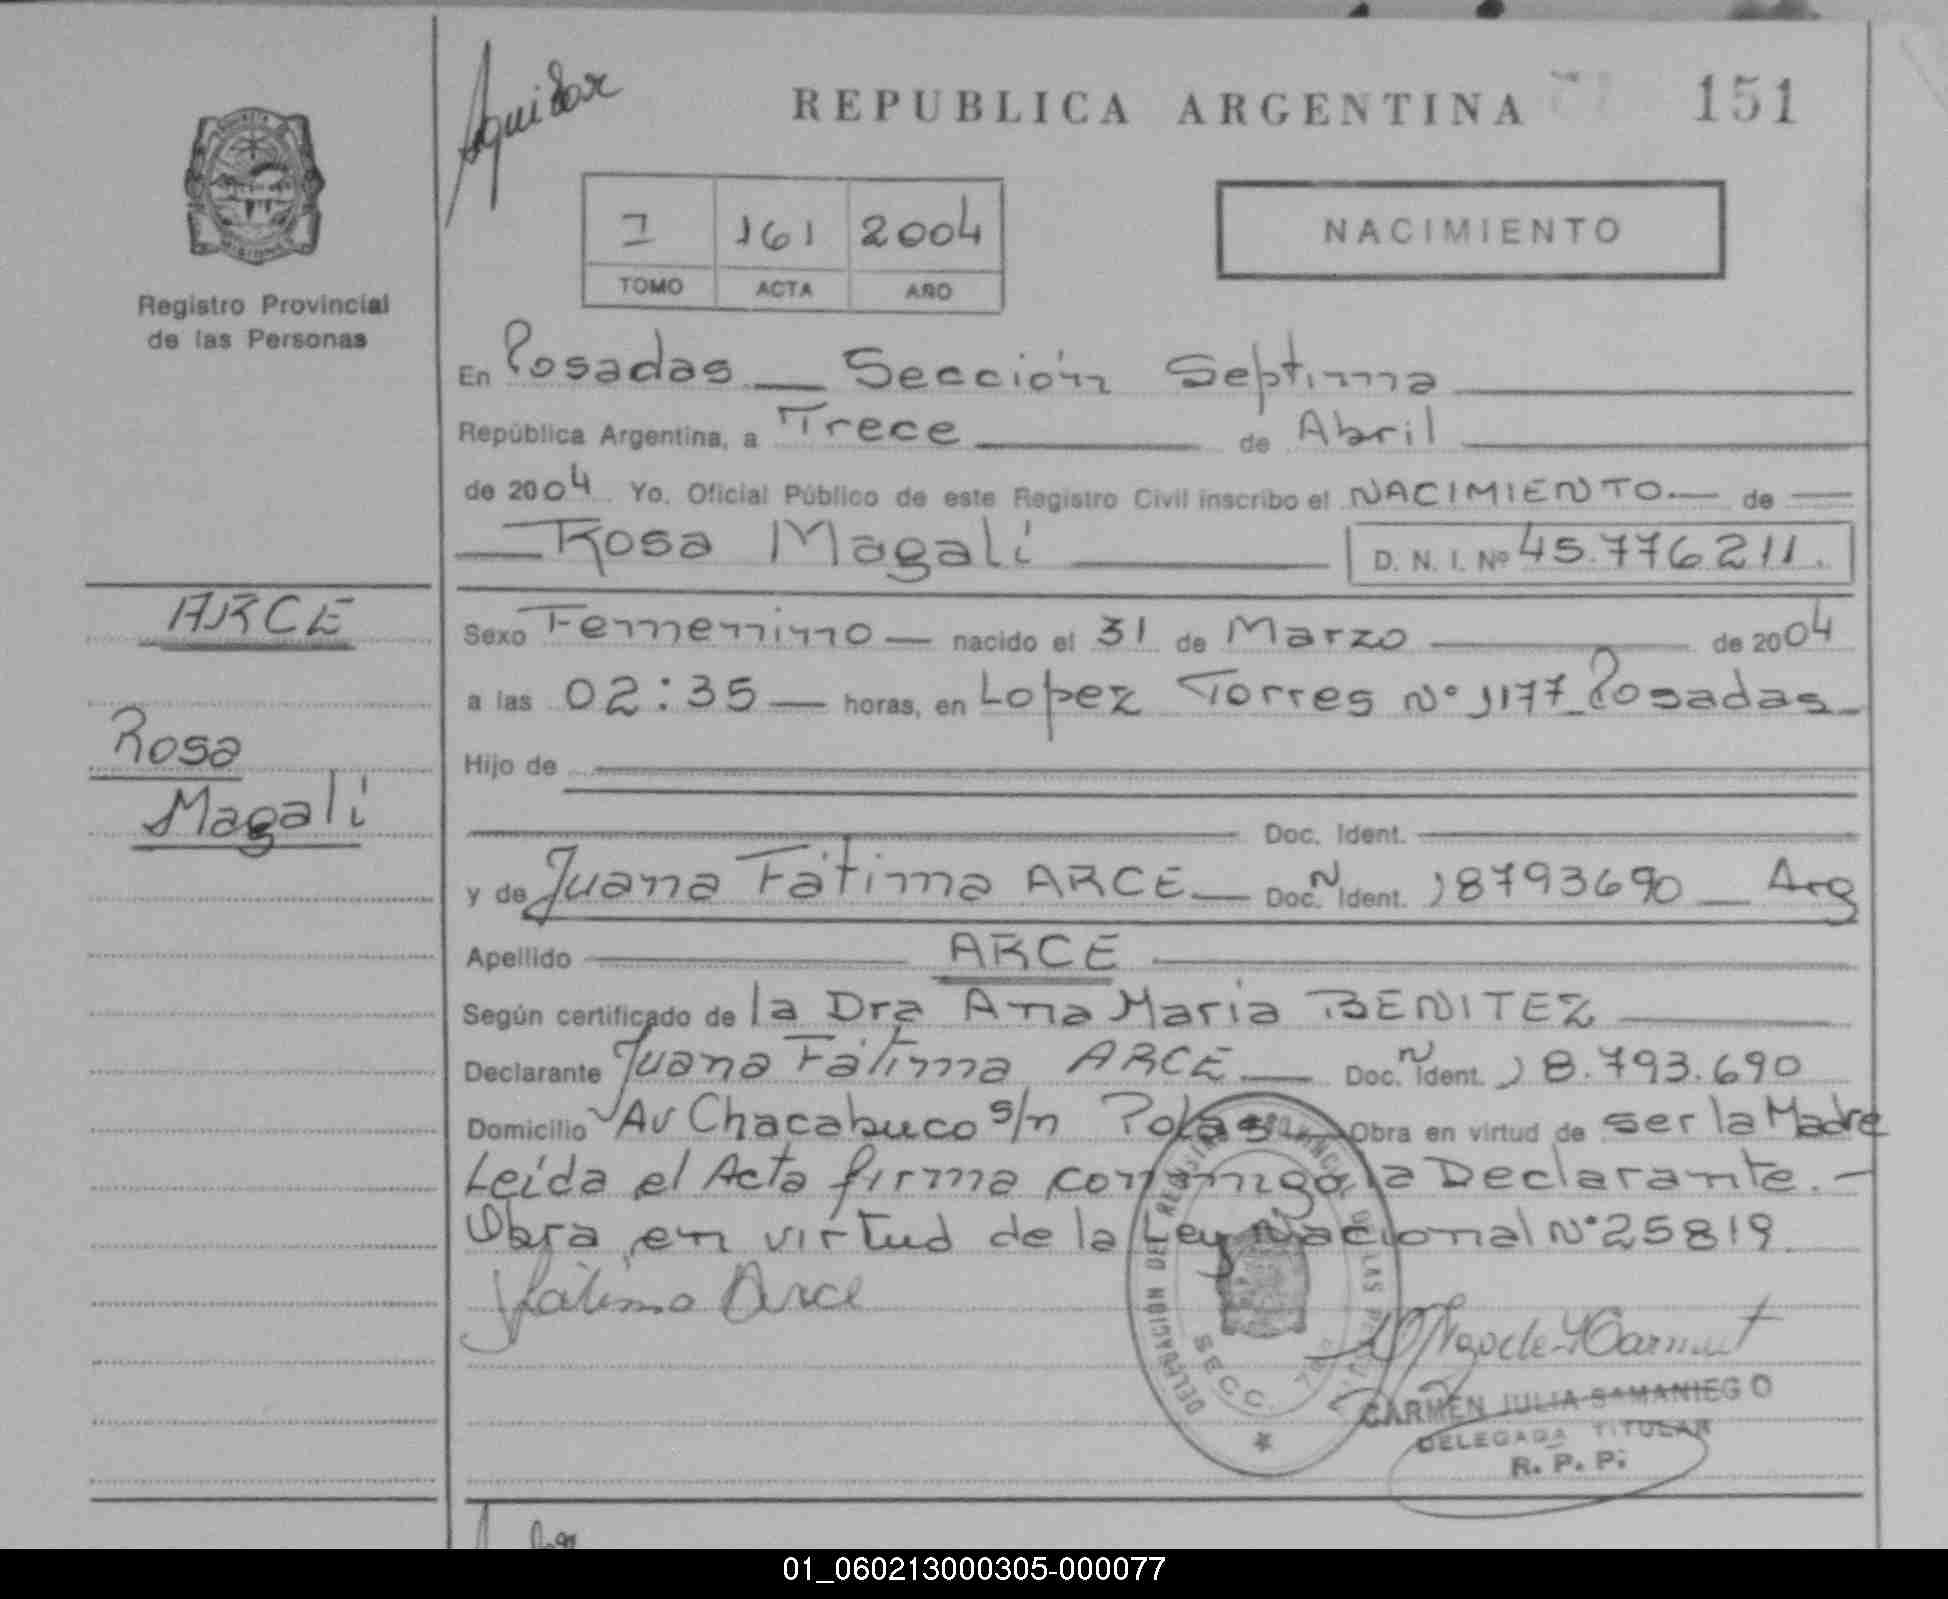 Aguilar
REPUBLICA ARGENTINA 151
I 161 2004
TOMO ACTA AÑO
NACIMIENTO
Registro Provincial
de las Personas
En Posadas — Sección Septima
República Argentina, a Trece de Abril
de 2004 Yo, Oficial Público de este Registro Civil inscribo el NACIMIENTO — de
Rosa Magalí D. N. I. Nº 45.776.211.
ARCE
Rosa
Magalí
Sexo Femenino — nacido el 31 de Marzo de 2004
a las 02:35 — horas, en Lopez Torres Nº 1177 _ Posadas
Hijo de
Doc. Ident.
y de Juana Fátima ARCE — Doc. N Ident. 18793690 — Arg
Apellido ARCE
Según certificado de la Dra Ana Maria BENITEZ
Declarante Juana Fátima ARCE — Doc. N Ident. 18.793.690
Domicilio Av Chacabuco s/n Pdas — Obra en virtud de ser la Madre
Leída el Acta firma conmigo la Declarante. —
Obra en virtud de la Ley Nacional Nº 25819
Fátima Arce
DELEGACIÓN DEL REGISTRO PROVINCIAL DE LAS
SECC. 7
CARMEN JULIA SAMANIEGO
DELEGADA TITULAR
R. P. P.
01_060213000305-000077